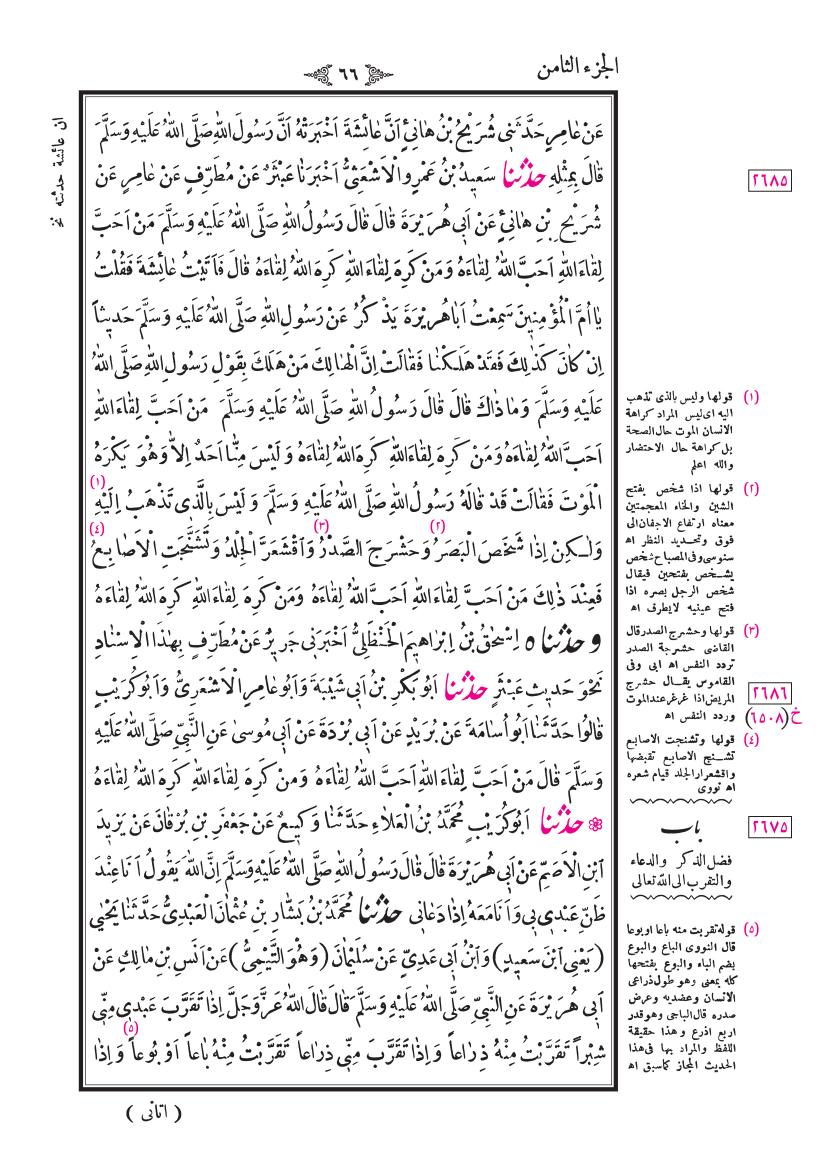 الجزء الثامن
٦٦
عَنْ عَامِرٍ حَدَّثَنِي شُرَيْحُ بْنُ هَانِئٍ اَنَّ عَائِشَةَ اَخْبَرَتْهُ اَنَّ رَسُولَ اللهِ صَلَّى اللهُ عَلَيْهِ وَسَلَّمَ
قَالَ بِمِثْلِهِ حَدَّثَنَا سَعِيدُ بْنُ عَمْرٍو الْاَشْعَثِىُّ اَخْبَرَنَا عَبْثَرٌ عَنْ مُطَرِّفٍ عَنْ عَامِرٍ عَنْ
شُرَيْحِ بْنِ هَانِئٍ عَنْ اَبِى هُرَيْرَةَ قَالَ قَالَ رَسُولُ اللهِ صَلَّى اللهُ عَلَيْهِ وَسَلَّمَ مَنْ اَحَبَّ
لِقَاءَ اللهِ اَحَبَّ اللهُ لِقَاءَهُ وَمَنْ كَرِهَ لِقَاءَ اللهِ كَرِهَ اللهُ لِقَاءَهُ قَالَ فَاَتَيْتُ عَائِشَةَ فَقُلْتُ
يَا اُمَّ الْمُؤْمِنِينَ سَمِعْتُ اَبَا هُرَيْرَةَ يَذْكُرُ عَنْ رَسُولِ اللهِ صَلَّى اللهُ عَلَيْهِ وَسَلَّمَ حَدِيثاً
اِنْ كَانَ كَذٰلِكَ فَقَدْ هَلَكْنَا فَقَالَتْ اِنَّ الْهَالِكَ مَنْ هَلَكَ بِقَوْلِ رَسُولِ اللهِ صَلَّى اللهُ
عَلَيْهِ وَسَلَّمَ وَمَا ذَاكَ قَالَ قَالَ رَسُولُ اللهِ صَلَّى اللهُ عَلَيْهِ وَسَلَّمَ مَنْ اَحَبَّ لِقَاءَ اللهِ
اَحَبَّ اللهُ لِقَاءَهُ وَمَنْ كَرِهَ لِقَاءَ اللهِ كَرِهَ اللهُ لِقَاءَهُ وَلَيْسَ مِنَّا اَحَدٌ اِلاَّ وَهُوَ يَكْرَهُ
الْمَوْتَ فَقَالَتْ قَدْ قَالَهُ رَسُولُ اللهِ صَلَّى اللهُ عَلَيْهِ وَسَلَّمَ وَلَيْسَ بِالَّذِى تَذْهَبُ اِلَيْهِ (١)
وَلٰكِنْ اِذَا شَخَصَ الْبَصَرُ (٢) وَحَشْرَجَ الصَّدْرُ (٣) وَاقْشَعَرَّ الْجِلْدُ وَتَشَنَّجَتِ الْاَصَابِعُ (٤)
فَعِنْدَ ذٰلِكَ مَنْ اَحَبَّ لِقَاءَ اللهِ اَحَبَّ اللهُ لِقَاءَهُ وَمَنْ كَرِهَ لِقَاءَ اللهِ كَرِهَ اللهُ لِقَاءَهُ
وحَدَّثَنَاه اِسْحٰقُ بْنُ اِبْرَاهِيمَ الْحَنْظَلِىُّ اَخْبَرَنِى جَرِيرٌ عَنْ مُطَرِّفٍ بِهٰذَا الْاِسْنَادِ
نَحْوَ حَدِيثِ عَبْثَرٍ حَدَّثَنَا اَبُو بَكْرِ بْنُ اَبِى شَيْبَةَ وَاَبُو عَامِرٍ الْاَشْعَرِىُّ وَاَبُو كُرَيْبٍ
قَالُوا حَدَّثَنَا اَبُو اُسَامَةَ عَنْ بُرَيْدٍ عَنْ اَبِى بُرْدَةَ عَنْ اَبِى مُوسَى عَنِ النَّبِىِّ صَلَّى اللهُ عَلَيْهِ
وَسَلَّمَ قَالَ مَنْ اَحَبَّ لِقَاءَ اللهِ اَحَبَّ اللهُ لِقَاءَهُ وَمَنْ كَرِهَ لِقَاءَ اللهِ كَرِهَ اللهُ لِقَاءَهُ
حَدَّثَنَا اَبُو كُرَيْبٍ مُحَمَّدُ بْنُ الْعَلاَءِ حَدَّثَنَا وَكِيعٌ عَنْ جَعْفَرِ بْنِ بُرْقَانَ عَنْ يَزِيدَ
ابْنِ الْاَصَمِّ عَنْ اَبِى هُرَيْرَةَ قَالَ قَالَ رَسُولُ اللهِ صَلَّى اللهُ عَلَيْهِ وَسَلَّمَ اِنَّ اللهَ يَقُولُ اَنَا عِنْدَ
ظَنِّ عَبْدِى بِى وَاَنَا مَعَهُ اِذَا دَعَانِى حَدَّثَنَا مُحَمَّدُ بْنُ بَشَّارِ بْنِ عُثْمَانَ الْعَبْدِىُّ حَدَّثَنَا يَحْيٰى
(يَعْنِى ابْنَ سَعِيدٍ) وَابْنُ اَبِى عَدِىٍّ عَنْ سُلَيْمَانَ (وَهُوَ التَّيْمِىُّ) عَنْ اَنَسِ بْنِ مَالِكٍ عَنْ
اَبِى هُرَيْرَةَ عَنِ النَّبِىِّ صَلَّى اللهُ عَلَيْهِ وَسَلَّمَ قَالَ قَالَ اللهُ عَزَّ وَجَلَّ اِذَا تَقَرَّبَ عَبْدِى مِنِّى
شِبْراً تَقَرَّبْتُ مِنْهُ ذِرَاعاً وَاِذَا تَقَرَّبَ مِنِّى ذِرَاعاً تَقَرَّبْتُ مِنْهُ بَاعاً اَوْ بُوعاً (٥) وَاِذَا
( اتانى )
ان عائشة حدثته نخ
٢٦٨٥
(١) قولها وليس بالذى تذهب
اليه اى ليس المراد كراهة
الانسان الموت حال الصحة
بل كراهة حال الاحتضار
والله اعلم
(٢) قولها اذا شخص بفتح
الشين والخاء المعجمتين
معناه ارتفاع الاجفان الى
فوق وتحديد النظر اه
سنوسى وفى المصباح شخص
يشخص بفتحين فيقال
شخص الرجل بصره اذا
فتح عينيه لا يطرف اه
(٣) قولها وحشرج الصدر قال
القاضى حشرجة الصدر
تردد النفس اه ابى وفى
القاموس يقال حشرج
المريض اذا غرغر عند الموت
وردد النفس اه
٢٦٨٦
خ (٦٥٠٨)
(٤) قولها وتشنجت الاصابع
تشنج الاصابع تقبضها
واقشعرار الجلد قيام شعره
اه نووى
٢٦٧٥
باب
فضل الذكر والدعاء
والتقرب الى الله تعالى
(٥) قوله تقربت منه باعا او بوعا
قال النووى الباع والبوع
بضم الباء والبوع بفتحها
كله بمعنى وهو طول ذراعى
الانسان وعضديه وعرض
صدره قال الباجى وهو قدر
اربع اذرع وهذا حقيقة
اللفظ والمراد بها فى هذا
الحديث المجاز كما سبق اه